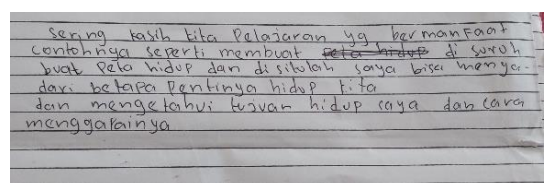 sering kasih kita Pelajaran yg bermanfaat
contohnya seperti membuat peta hidup di suruh
buat Peta hidup dan disitulah saya bisa menya-
dari betapa Pentinya hidup kita
dan mengetahui tujuan hidup saya dan cara
menggapainya